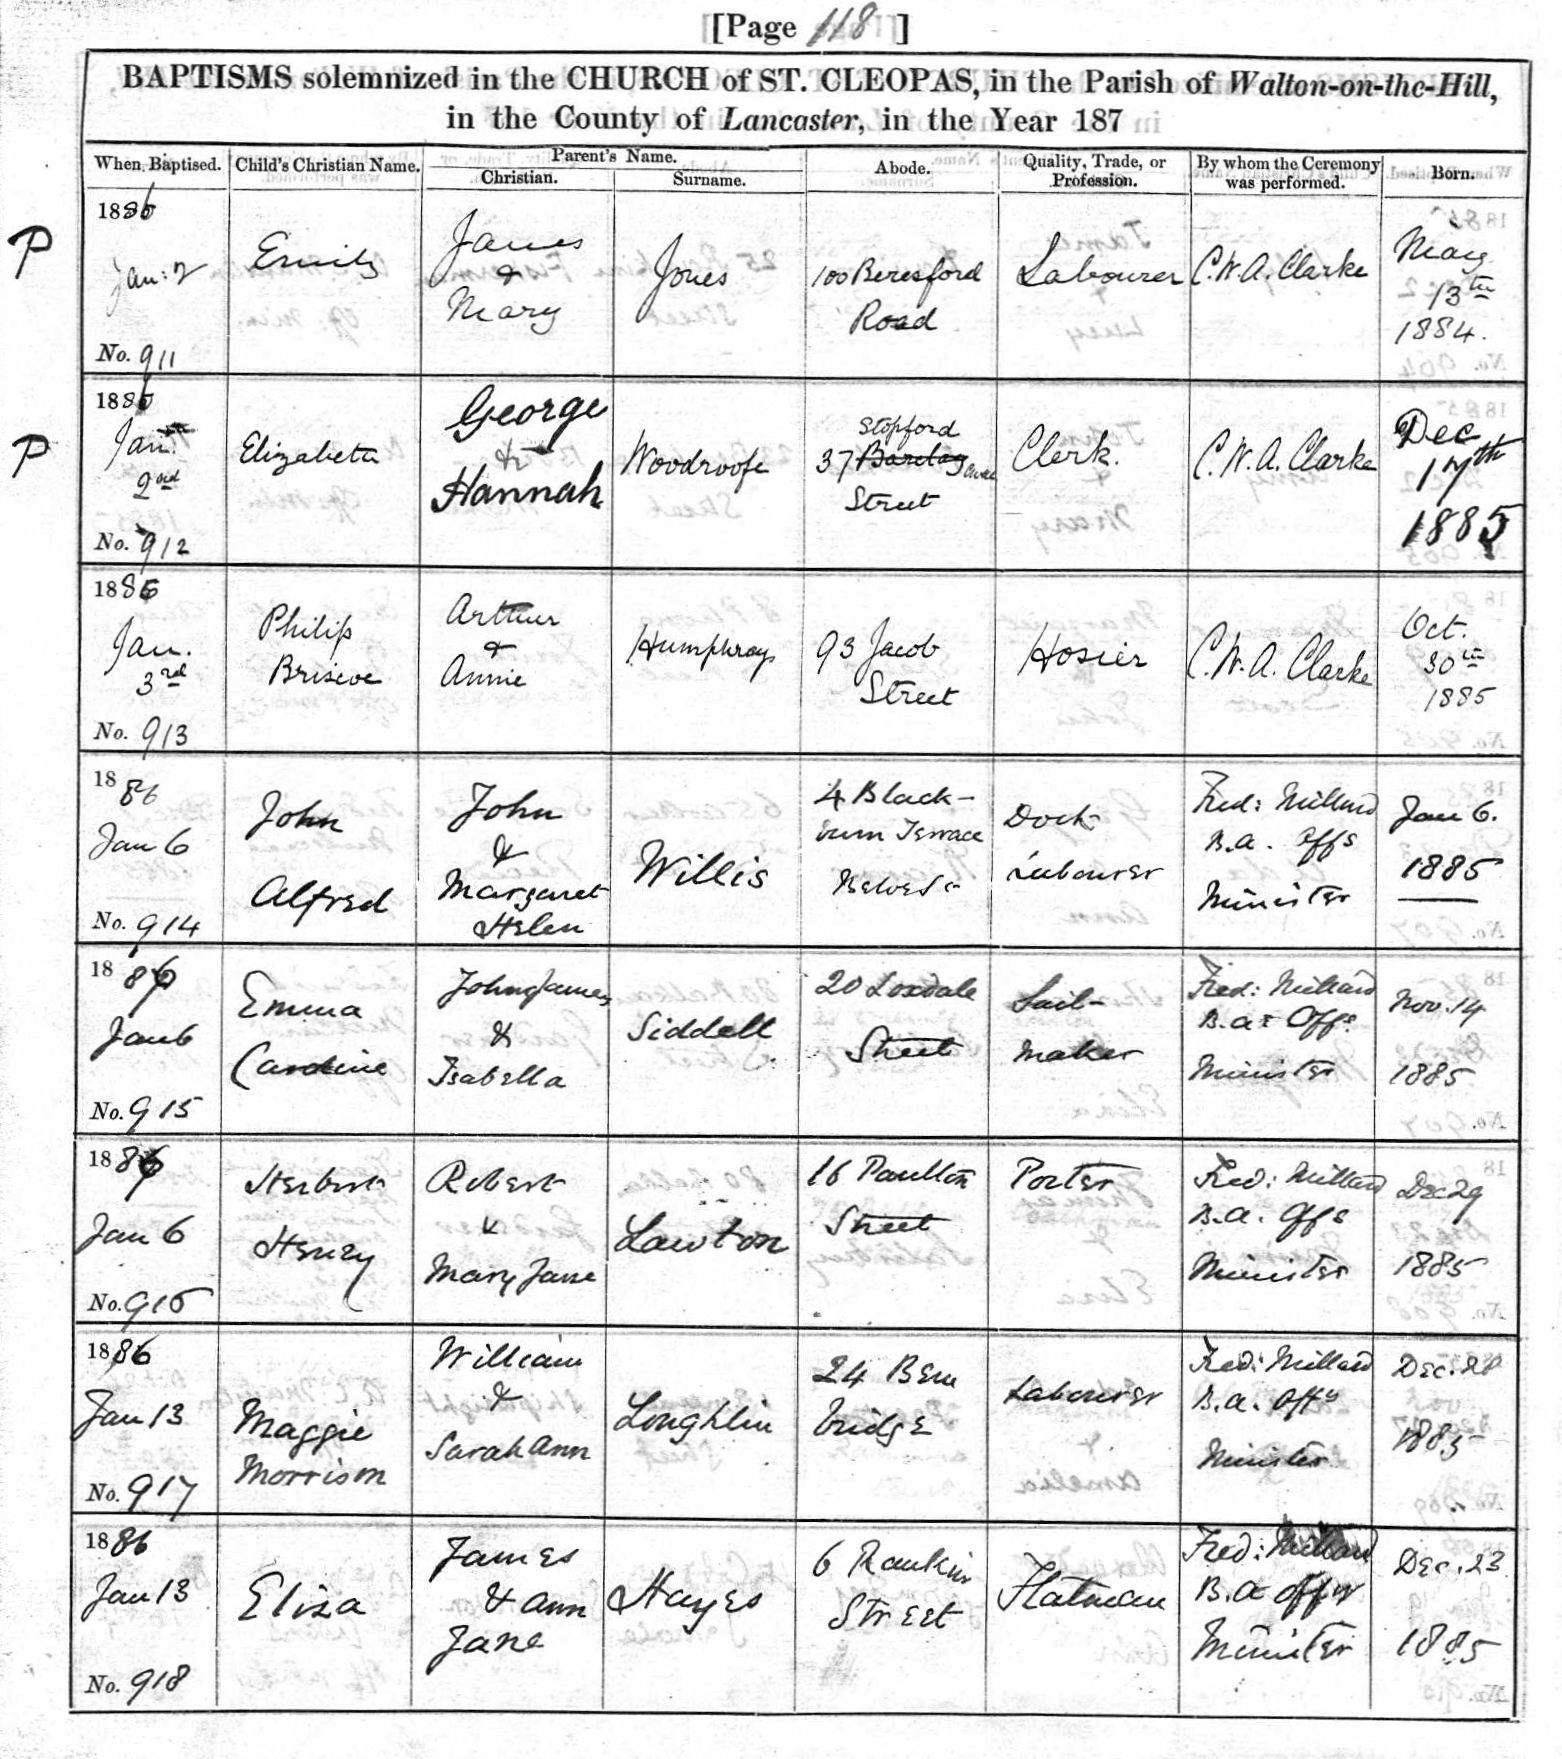 [Page 118]
BAPTISMS solemnized in the CHURCH of ST. CLEOPAS, in the Parish of Walton-on-the-Hill,
in the County of Lancaster, in the Year 187
When Baptised. Child's Christian Name. Parent's Name. Christian. Surname. Abode. Quality, Trade, or Profession. By whom the Ceremony was performed. Born.
P
1886
Jan: 2
No. 911
Emily
James
&
Mary
Jones
100 Beresford
Road
Labourer
C. W. A. Clarke
May
13th
1884.
P
1886
Jan.
2nd
No. 912
Elizabeth
George
&
Hannah
Woodroofe
Stopford
37 Barclay
Street
Clerk.
C. W. A. Clarke
Dec
17th
1885
1886
Jan.
3rd
No. 913
Philip
Briscoe
Arthur
&
Annie
Humphreys
93 Jacob
Street
Hosier
C. W. A. Clarke
Oct.
30th
1885
1886
Jan 6
No. 914
John
Alfred
John
&
Margaret
Helen
Willis
4 Black-
burn Terrace
Dock
Labourer
Fred: Millard
B.A. Offg
Minister
Jan 6.
1885
1886
Jan 6
No. 915
Emma
Caroline
John James
&
Isabella
Siddell
20 Loxdale
Street
Sail-
maker
Fred: Millard
B.A. Offg
Minister
Nov. 14
1885
1886
Jan 6
No. 916
Herbert
Henry
Robert
&
Mary Jane
Lawton
16 Paulton
Street
Porter
Fred: Millard
B.A. Offg
Minister
Dec 29
1885
1886
Jan 13
No. 917
Maggie
Morrison
William
&
Sarah Ann
Loughlin
24
bridge
Labourer
Fred: Millard
B.A. Offg
Minister
Dec. 28
1885
1886
Jan 13
No. 918
Eliza
James
& Ann
Jane
Hayes
6 Rankin
Street
Flatman
Fred: Millard
B.A. Offg
Minister
Dec. 23
1885